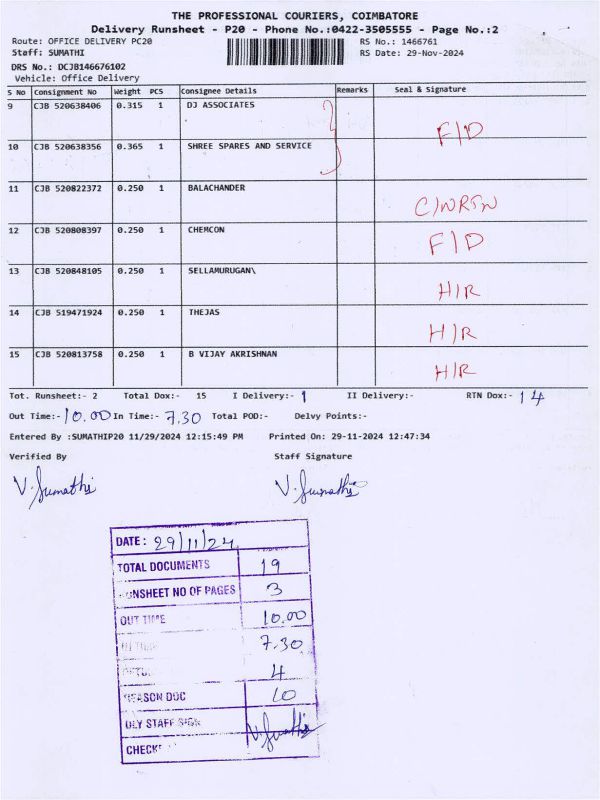 THE PROFESSIONAL COURIERS, COIMBATORE
Delivery Runsheet - P20 - Phone No.:0422-3505555 - Page No.:2
Route: OFFICE DELIVERY PC20 RS No.: 1466761
Staff: SUMATHI RS Date: 29-Nov-2024
DRS No.: DCJB146676102
Vehicle: Office Delivery
S No Consignment No Weight PCS Consignee Details Remarks Seal & Signature
9 CJB 520638406 0.315 1 DJ ASSOCIATES
F/D
10 CJB 520638356 0.365 1 SHREE SPARES AND SERVICE
11 CJB 520822372 0.250 1 BALACHANDER
12 CJB 520808397 0.250 1 CHEMCON
F/D
13 CJB 520848105 0.250 1 SELLAMURUGAN\
H/R
14 CJB 519471924 0.250 1 THEJAS
H/R
15 CJB 520813758 0.250 1 B VIJAY AKRISHNAN
H/R
Tot. Runsheet:- 2 Total Dox:- 15 I Delivery:- 1 II Delivery:- RTN Dox:- 14
Out Time:- 10.00 In Time:- 7.30 Total POD:- Delvy Points:-
Entered By :SUMATHIP20 11/29/2024 12:15:49 PM Printed On: 29-11-2024 12:47:34
Verified By Staff Signature
V. Sumathi V. Sumathi
DATE: 29/11/24
TOTAL DOCUMENTS 19
UNSHEET NO OF PAGES 3
OUT TIME 10.00
IN TIME 7.30
4
REASON DOC 10
DLY STAFF SIGN V. Sumathi
CHECK